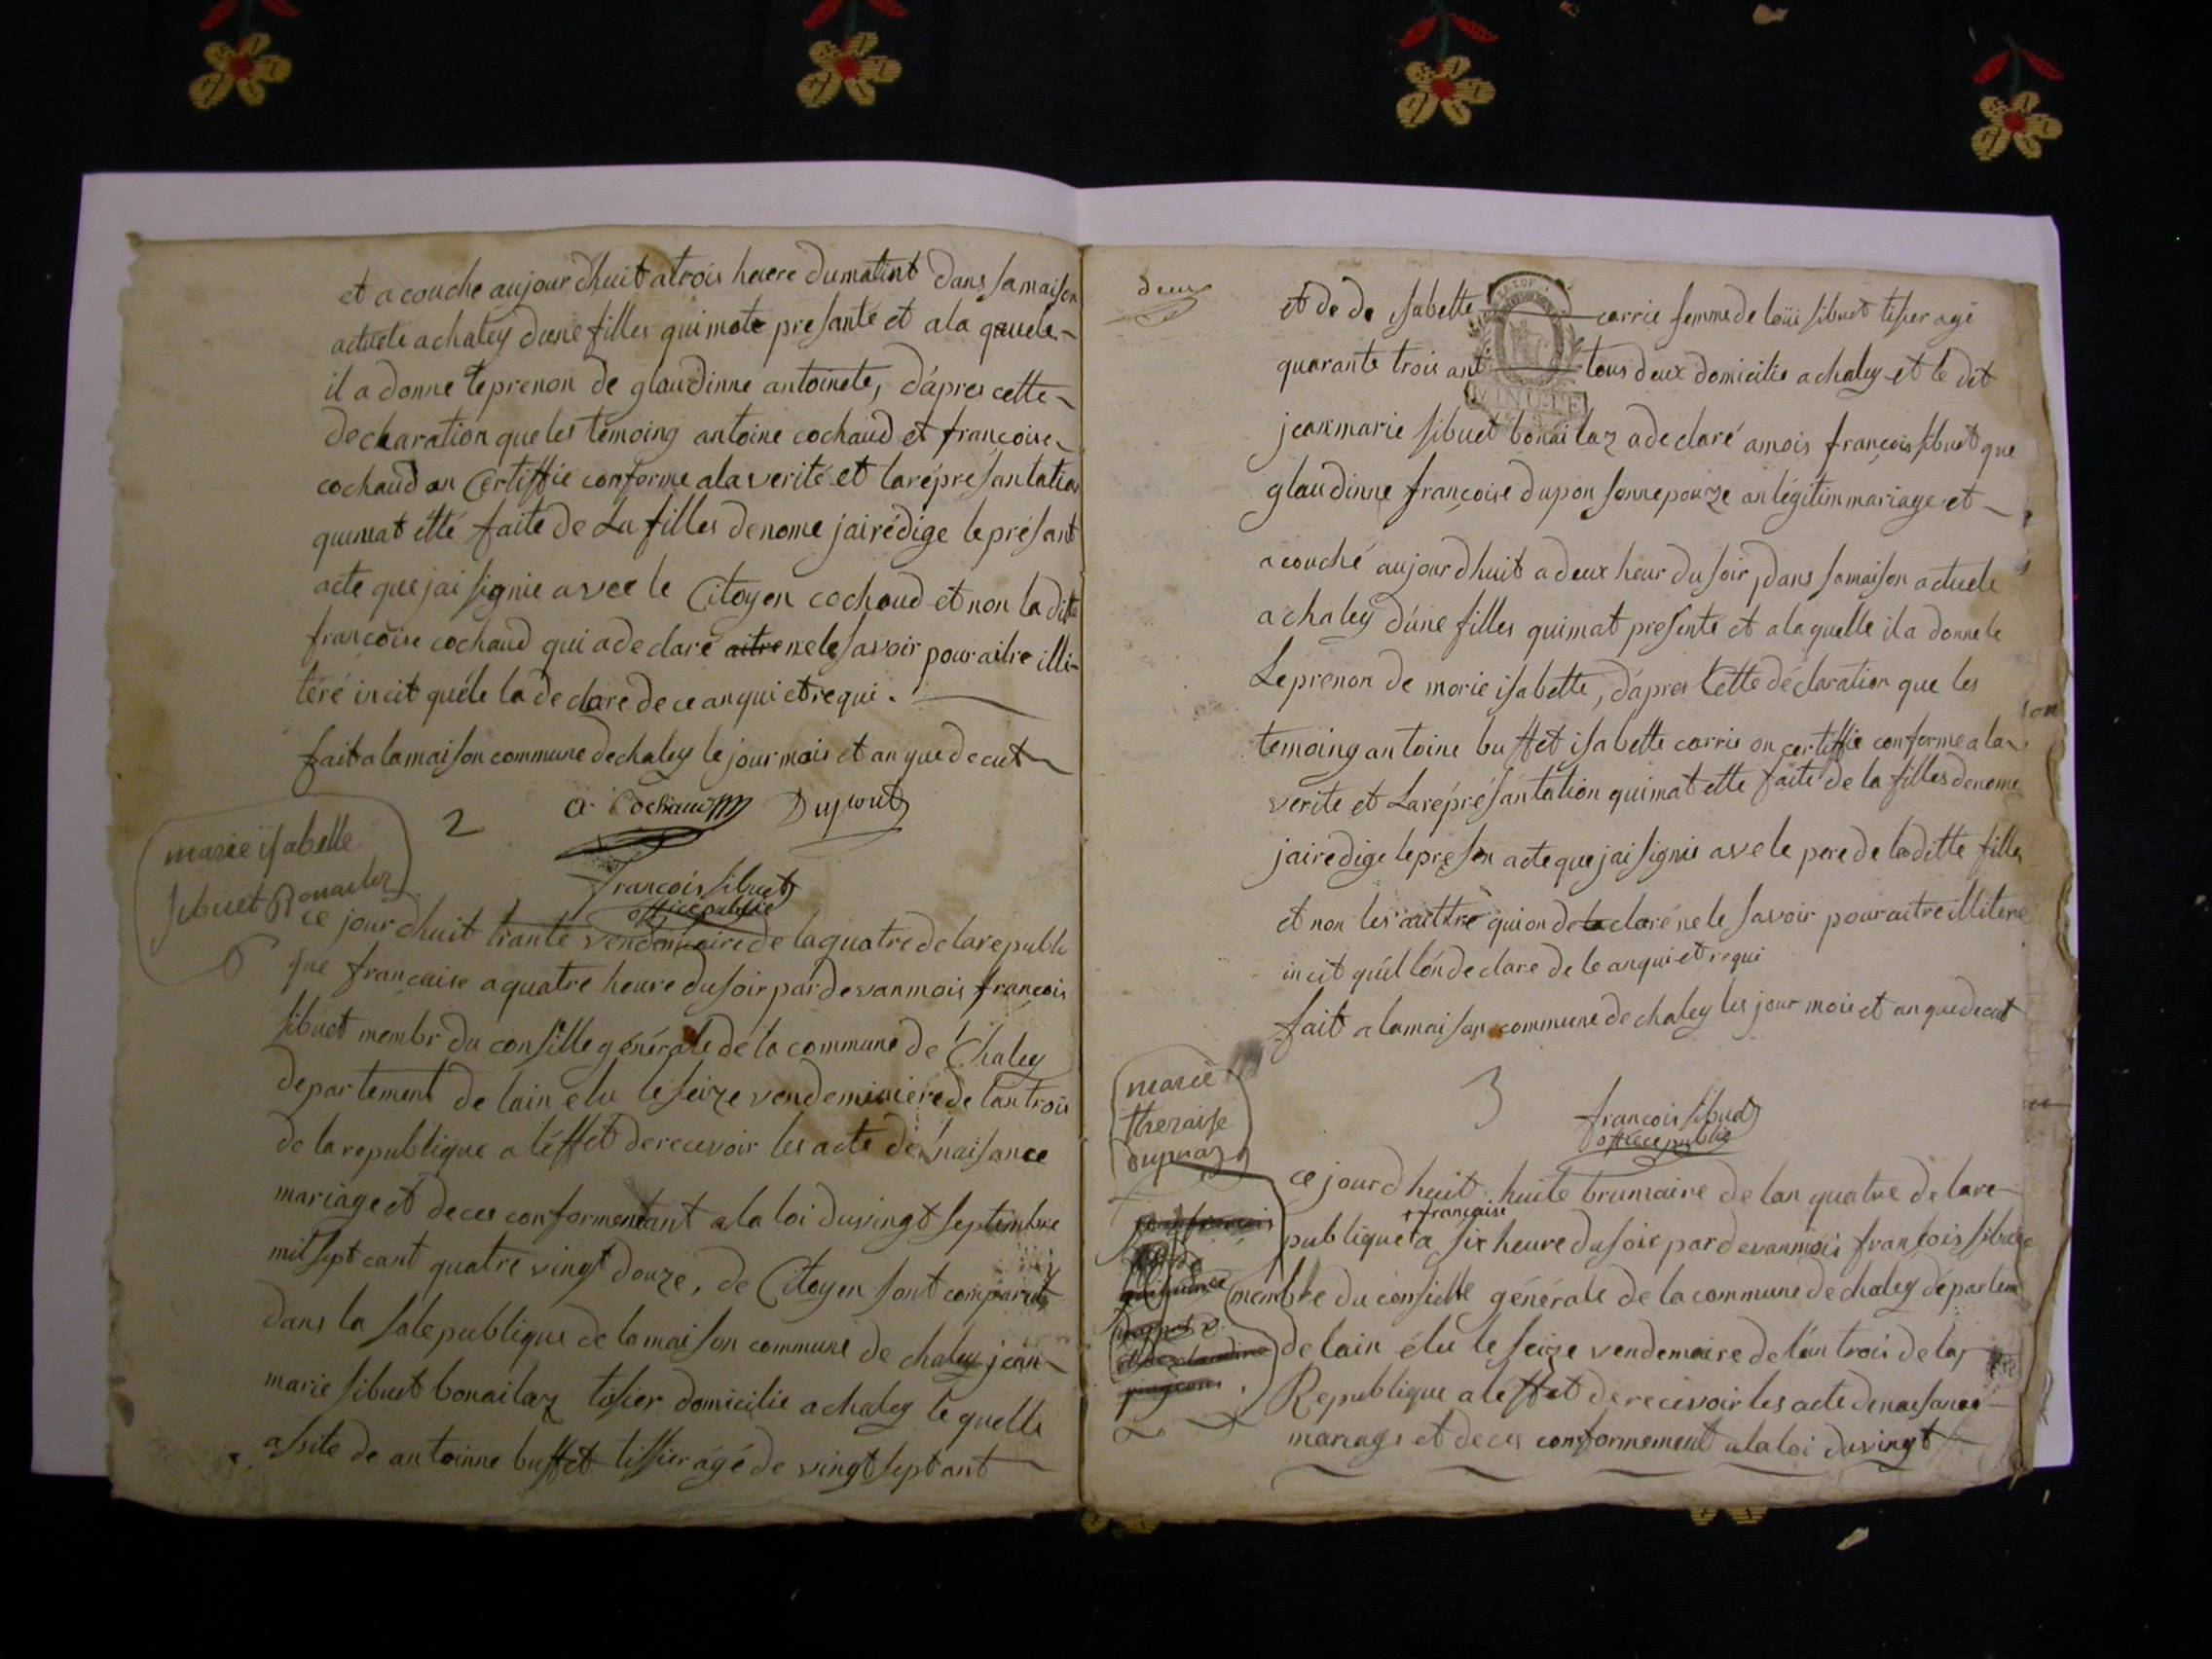 et a couche aujourdhuit a trois heure du matint dans sa maison
actuele a chaley dune filles qui mate presanté et a la quele
il a donne le prenon de glaudinne antoinete, d'apres cette
decharation que les témoing antoine cochaud et françoise
cochaud an Certiffie conforme a la verité et la réprésantation
qui mat étté faite de La filles denome jai rédige le présant
acte que jai signie avec le Citoyen cochaud et non la dite
françoise cochaud qui a declaré aitre ne le savoir pour aitre illi-
téré incit quéle la declare de ce anqui et requi.
fait a la maison commune de chaley le jour mois et an que decut
a. Cochaud Dupont
françois sibuet
office public
2
marie isabelle
sibuet Bonailaz
ce jourdhuit trante vendémiaire de la quatre de la republi
que française a quatre heure du soir par devan mois françois
sibuet membr du consille générale de la commune de Chaley
departement de lain elu le seize vendemiaiere de lan trois
de la republique a léffet de recevoir les acte de naisance
mariage et deces conformentant a la loi du vingt septembre
mil sept cant quatre vingt douze, de Citoyen sont comparut
dans la sale publique de la maison commune de chaley jean
marie sibuet bonailaz tisier domicilie a chaley le quelle
assite de antoinne buffet tissier agé de vingt sept ant
deux
et de de isabette carrie femme de loüi sibuet tisier agé
quarante trois ant tous deux domicilie a chaley et le dit
MINUTE
jean marie sibuet bonailaz a declaré a mois françois sibuet que
glaudinne françoise dupon sonne pouze an légitim mariage et
a couché aujourdhuit a deux heur du soir, dans sa maison actuele
a chaley dúne filles qui mat presenté et a la quelle il a donne le
Le prenon de marie isabette, d'apres Cette déclaration que les
temoing antoine buffet isabette carrie on certiffie conforme a la
verite et La réprésantation qui mat ette faite de la filles denome
jai redige le presen acte que jai signie ave le pere de la ditte filles
et non les auttre qui on declaré ne le savoir pour aitre illitere
incit quil lon declare de le anqui et requi
fait a la maison commune de chaley les jour mois et an que decut
3
françois sibuet
office public
marie
theraise
dupraz
ce jourdhuit huite brumaire de lan quatre de la re
+ française
publique a six heure du soir par devan mois françois sibuet
membre du consielle générale de la commune de chaley départem
de lain élu le seize vendemaire de lan trois de la
Republique a leffet de recevoir les acte denaisance
mariage et deces conformement a la loi du vingt